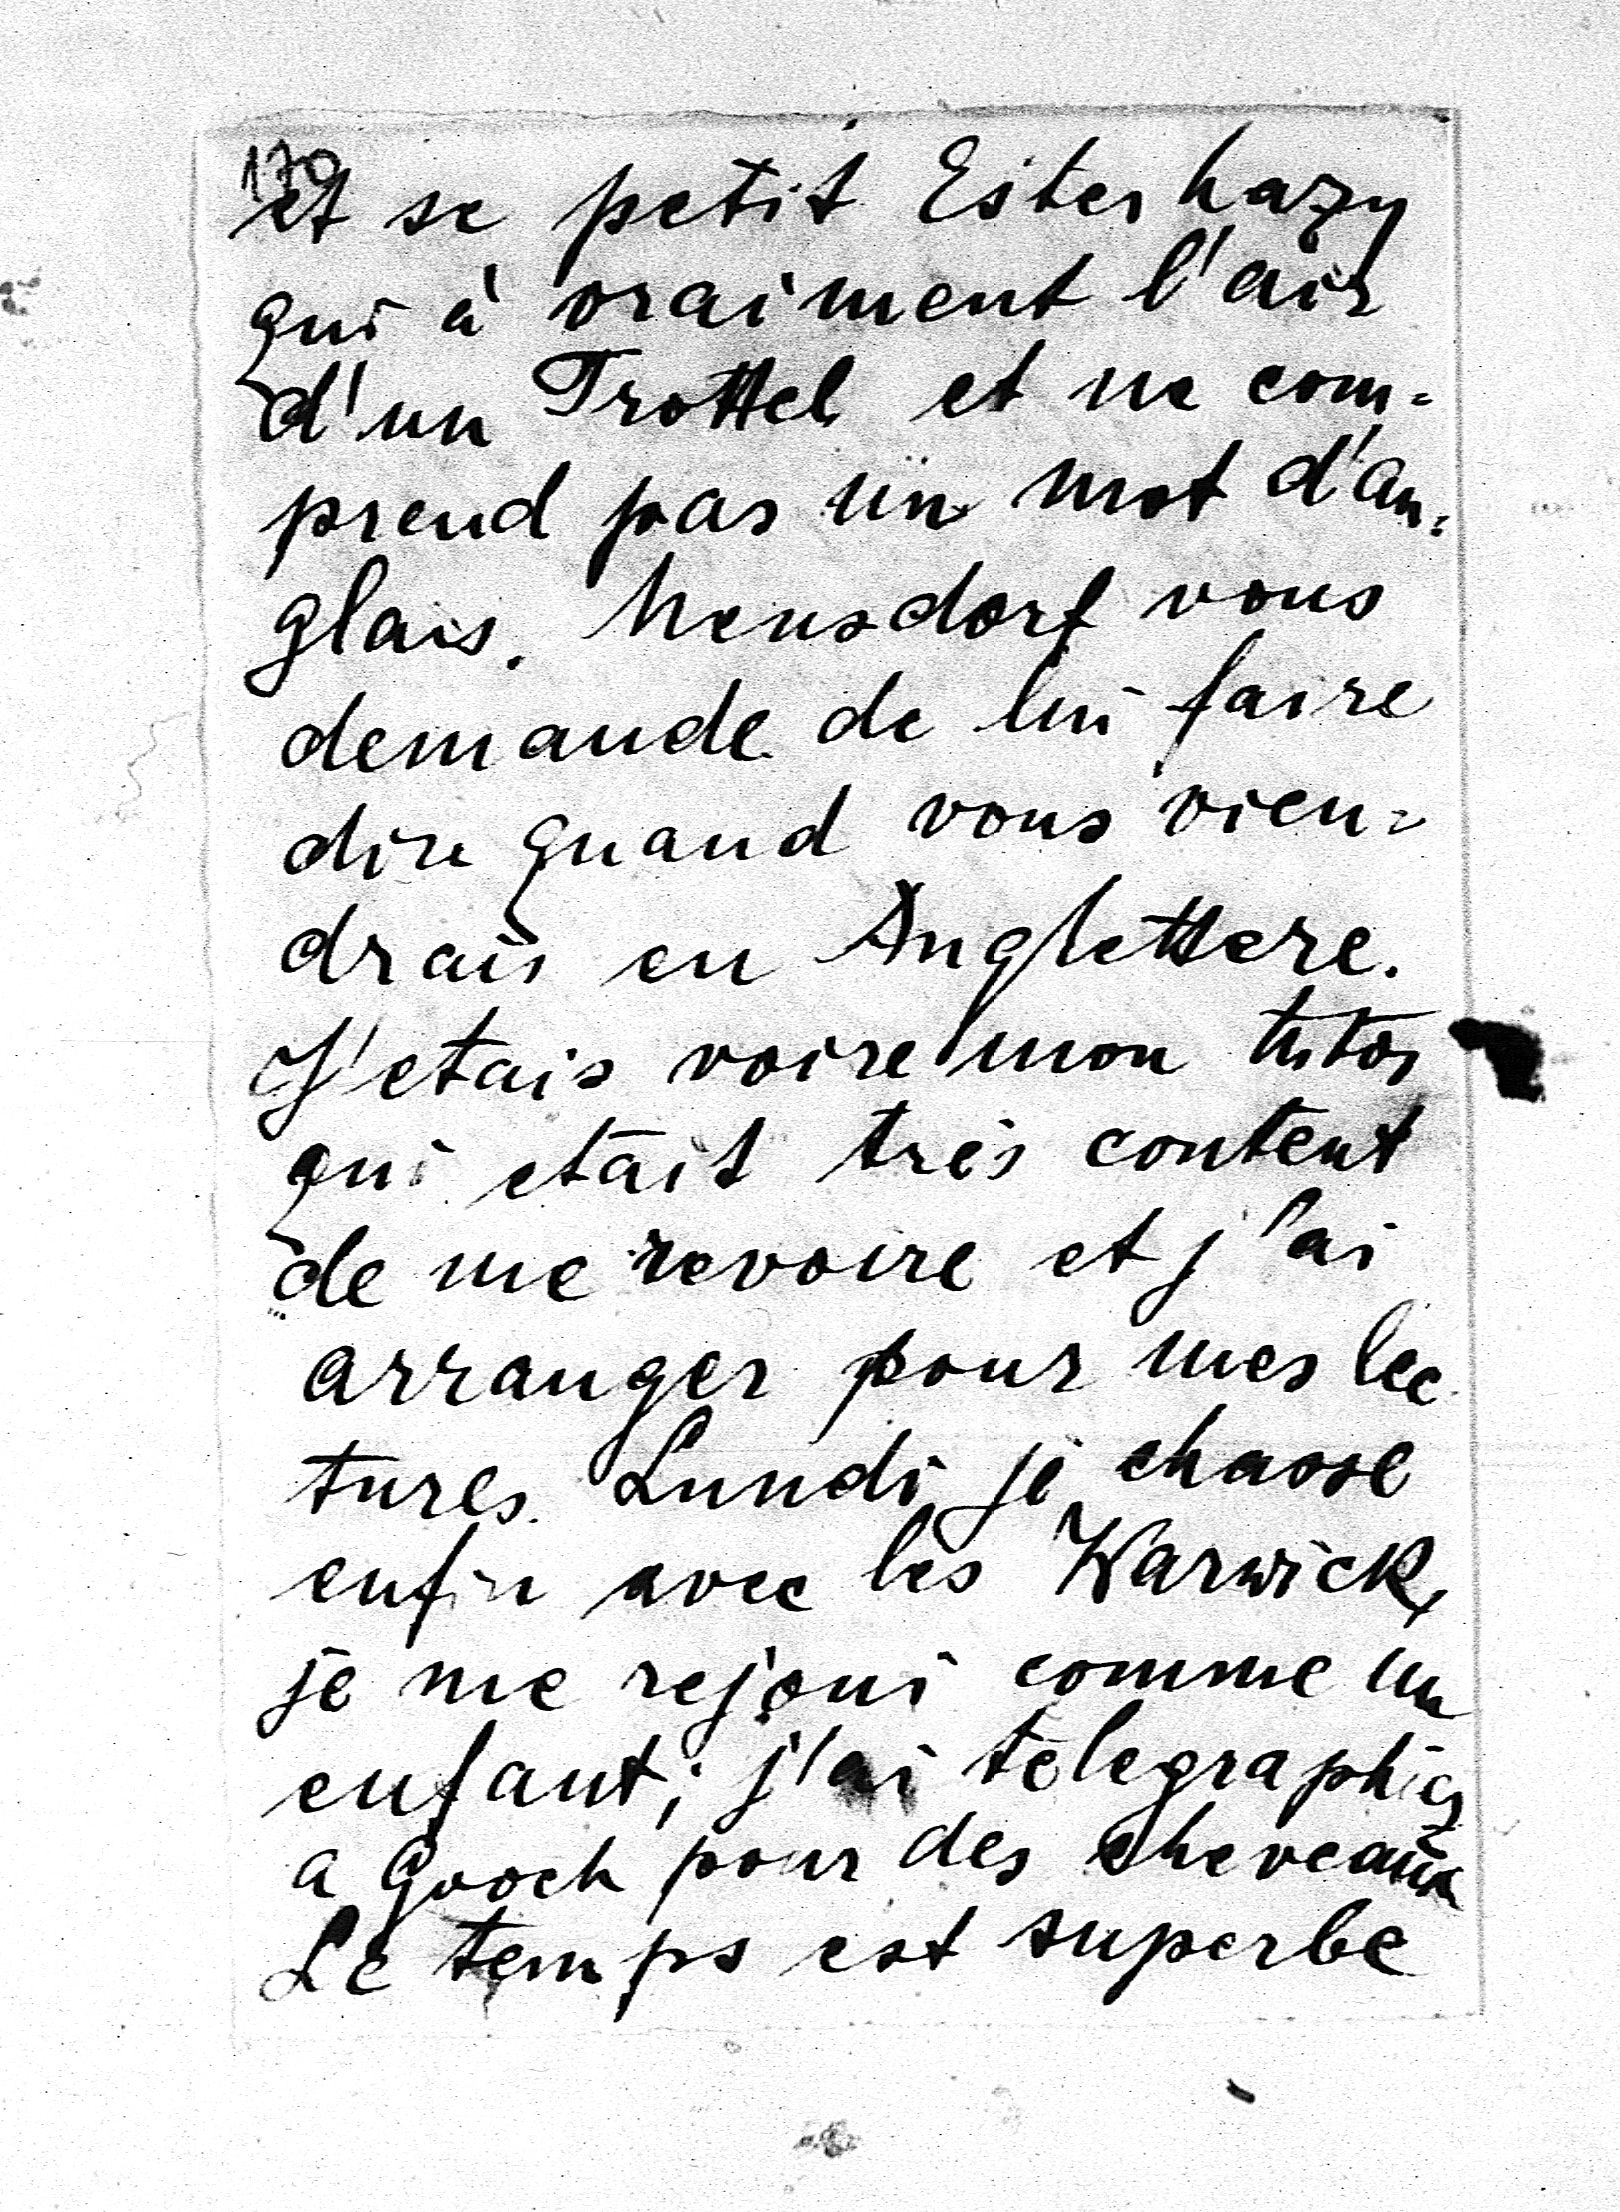 170
et se petit Esterhazy
qui à vraiment l'air
d'un Trottel et ne com-
prend pas un mot d'an-
glais. Mensdorf vous
demande de lui faire
dire quand vous vien-
drais en Anglettere.
J'etais voire mon tutor
qui etait très content
de me revoire et j'ai
arranger pour mes lec
tures. Lundi je chasse
enfin avec les Warwick,
je me rejoui comme un
enfant; j'ai telegraphier
a Gooch pour des cheveaux
Le temps est superbe